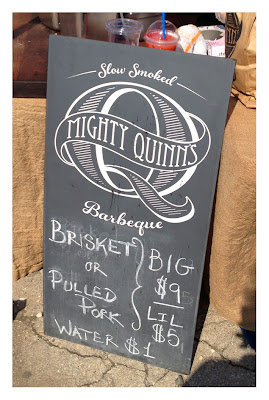 Slow Smoked
MIGHTY QUINN'S
Barbeque
BRISKET
OR
PULLED
PORK
BIG
$9
LIL
$5
WATER $1